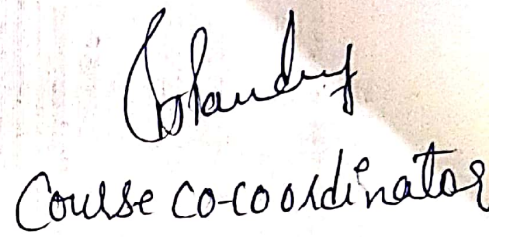 Course co-coordinator